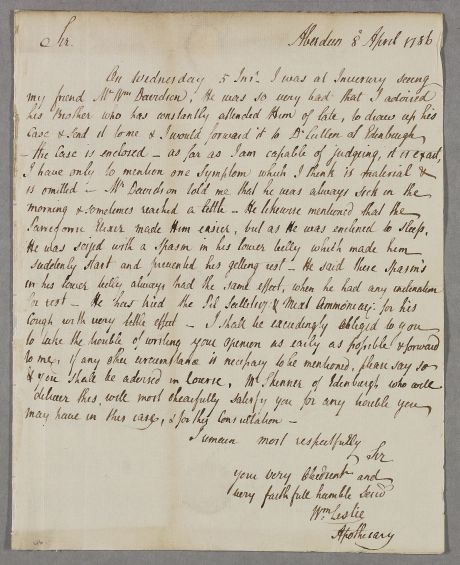 Sir.
Aberdeen 8 April 1786
On Wednesday 5 Inst. I was at Inverury seeing
my friend Mr Wm Davidson, He was so very bad that I advised
his Brother who has constantly attended Him of late, to draw up his
Case & Send it to me & I would forward it to Dr Cullen of Edinburgh
- the Case is enclosed - as far as I am capable of judging, it is exact,
I have only to mention one Symptom which I think is material &
is omitted - Mr Davidson told me that he was always sick in the
morning & sometimes reached a little - He likewise mentioned that the
Paregoric Elixer made Him easier, but as He was enclined to sleep,
He was seized with a Spasm in his lower belly which made him
suddenly start and prevented his getting rest - He said these Spasms
in his lower belly always had the same effect, when he had any inclination
for rest - He has tried the Pil Scillitic & Mixt Ammoniac for his
Cough with very little effect - I shall be exceedingly obliged to you
to take the trouble of writing your opinion as early as possible & forward
to me, if any other circumstance is necessary to be mentioned, please say so
& you shall be advised in Course, Mr Skenner of Edinburgh who will
deliver this, will most chearfully satisfy you for any trouble you
may have in this case, & for this Consultation -
I remain most respectfully
Sir
your very Obedient and
very faithfull humble Servt
Wm Leslie
Apothecary